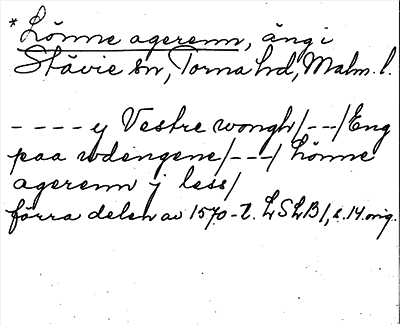 * Lönne agerenn, äng i
Stävie sn, Torna hd, Malm. l.
- - - - y Vestre wongh/ - - -/Eng
paa udengene/ - - -/ Lönne
agerenn j less/
förra delen av 1570-t. LSLB1, s. 14 orig.